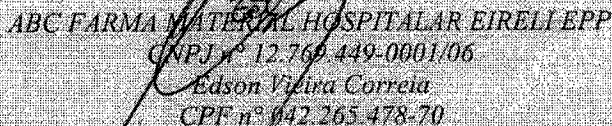 ABC FARMA MATERIAL HOSPITALAR EIRELI EPP
CNPJ nº 12.769.449-0001/06
Edson Vieira Correia
CPF nº 042.265.478-70